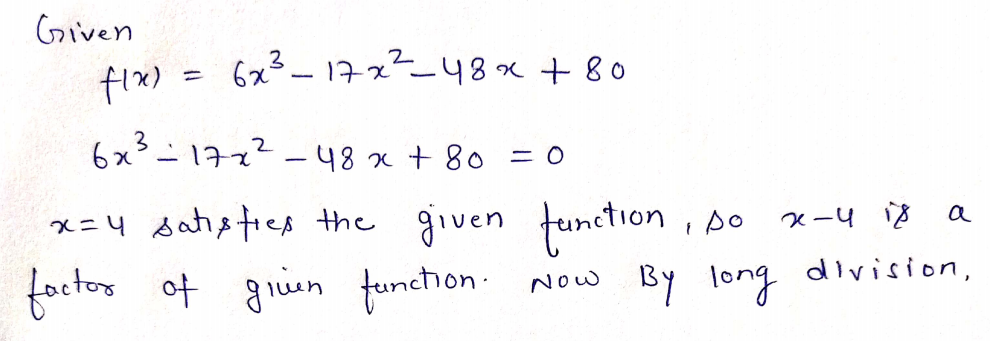 Given
f(x) = 6x³ - 17x² - 48x + 80
6x³ - 17x² - 48x + 80 = 0
x=4 satisfies the given function, so x-4 is a
factor of given function. Now By long division,